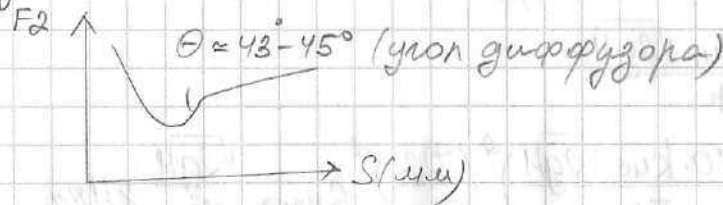 F2
Θ ≈ 43°-45° (угол диффузора)
S(мм)